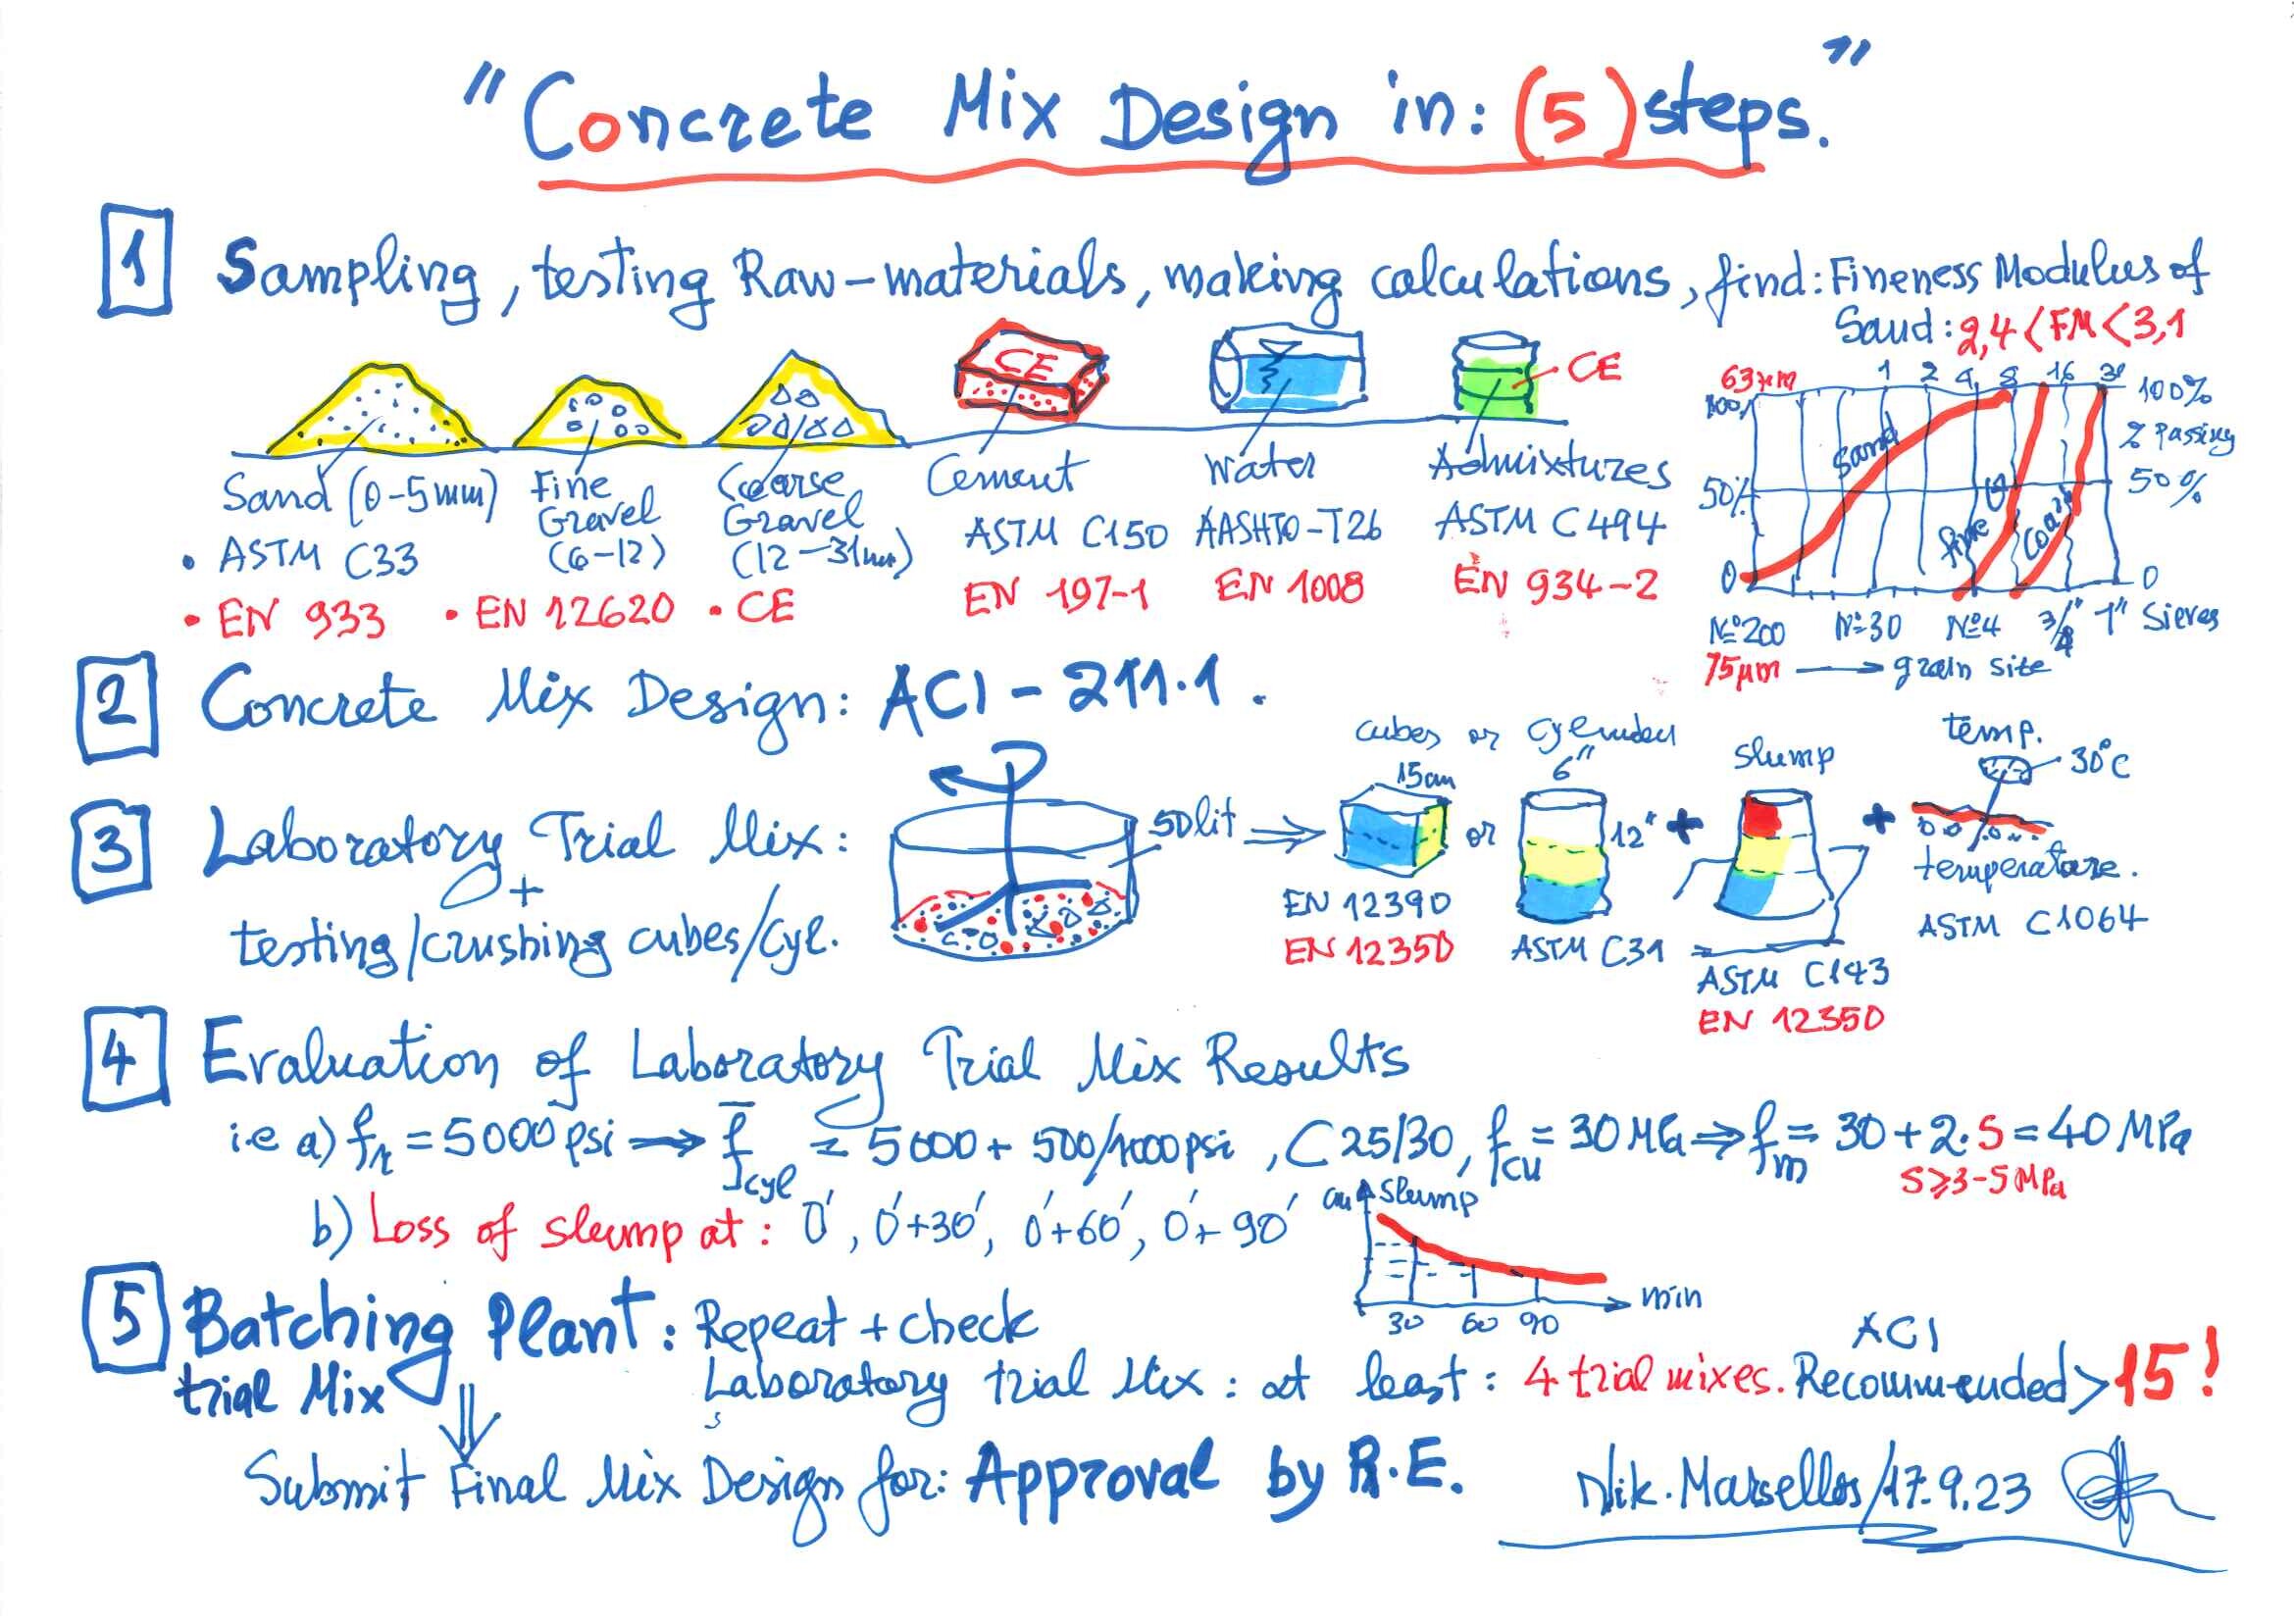 "Concrete Mix Design in: (5) steps."
1 Sampling, testing Raw-materials, making calculations, find: Fineness Modulus of
Sand: 2,4 < FM < 3,1
CE
CE
Sand (0-5mm)
Fine Gravel (6-12)
Coarse Gravel (12-31mm)
Cement
Water
Admixtures
• ASTM C33
ASTM C150
AASHTO-T26
ASTM C494
• EN 933 • EN 12620 • CE
EN 197-1
EN 1008
EN 934-2
63μm 1 2 4 8 16
100% 100%
% Passing
50% 50%
Sand
fine G
Coars
0 0
Nº200 Nº30 Nº4 3/4" 1" Sieves
75μm → grain site
2 Concrete Mix Design: ACI-211.1.
3 Laboratory Trial Mix:
+
testing/crushing cubes/cyl.
50lit ⇒
cubes or
15cm
or
6"
12"
+
slump
+
temp.
30°C
temperature.
EN 12390
EN 12350
ASTM C31
ASTM C143
EN 12350
ASTM C1064
4 Evaluation of Laboratory Trial Mix Results
i.e a) = 5000 psi → f̄cyl = 5000 + 500/1000psi, C25/30, fcu = 30 MPa ⇒ fm = 30+2.S = 40 MPa
S≥3-5 MPa
b) Loss of slump at: 0', 0'+30', 0'+60', 0'+90'
slump
30 60 90 min
5 Batching Plant: Repeat + check
trial Mix
Laboratory trial Mix: at least: 4 trial mixes. ACI Recommended > 15!
⇓
Submit Final Mix Design for: Approval by R.E.
Nik. Marsellos/17.9.23